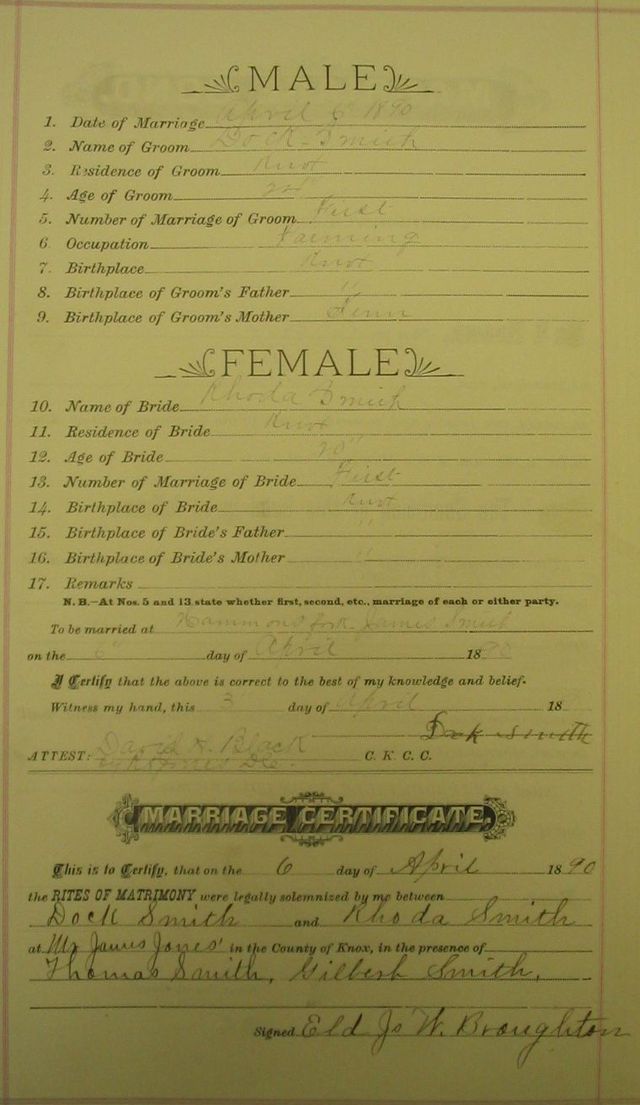 MALE
1. Date of Marriage April 6 1890
2. Name of Groom Dock Smith
3. Residence of Groom Knox
4. Age of Groom 24
5. Number of Marriage of Groom First
6. Occupation Farming
7. Birthplace Knox
8. Birthplace of Groom's Father "
9. Birthplace of Groom's Mother Tenn
FEMALE
10. Name of Bride Rhoda Smith
11. Residence of Bride Knox
12. Age of Bride 20"
13. Number of Marriage of Bride First
14. Birthplace of Bride Knox
15. Birthplace of Bride's Father "
16. Birthplace of Bride's Mother "
17. Remarks
N. B.—At Nos. 5 and 13 state whether first, second, etc., marriage of each or either party.
To be married at Hammons fork James Smith
on the 6" day of April 1890
I Certify that the above is correct to the best of my knowledge and belief.
Witness my hand, this 3 day of April 18
Dock Smith
ATTEST: David H. Black C. K. C. C.
MARRIAGE CERTIFICATE.
This is to Certify, that on the 6 day of April 1890
the RITES OF MATRIMONY were legally solemnized by me between
Dock Smith and Rhoda Smith
at Mr James Jones' in the County of Knox, in the presence of
Thomas Smith, Gilbert Smith,
Signed Eld Js W. Broughton